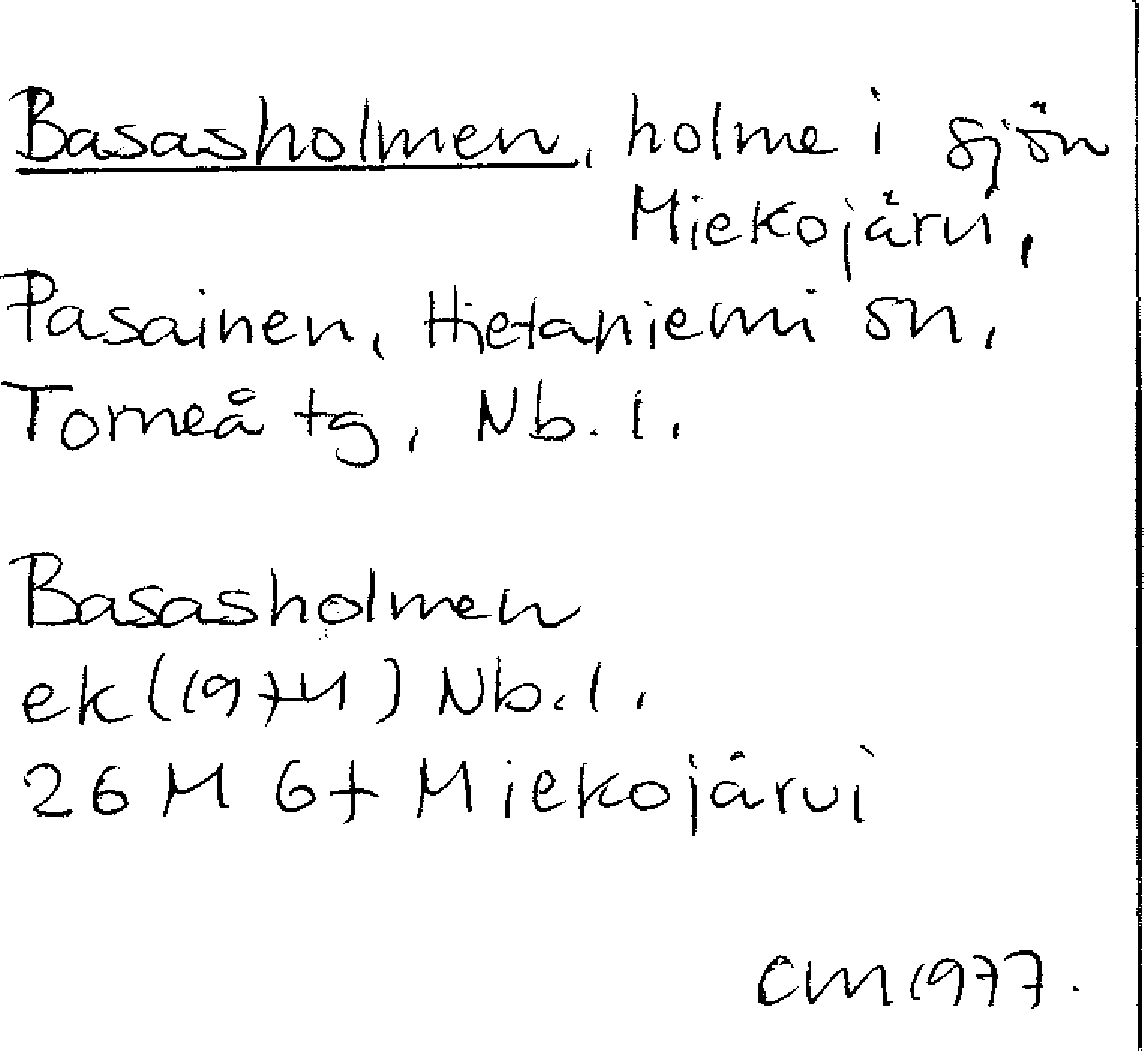 Basasholmen, holme i sjön
Miekojärvi,
Pasainen, Hietaniemi sn,
Torneå tg, Nb. l.
Basasholmen
ek (1971) Nb. l.
26 M 6f Miekojärvi
CM 1977.